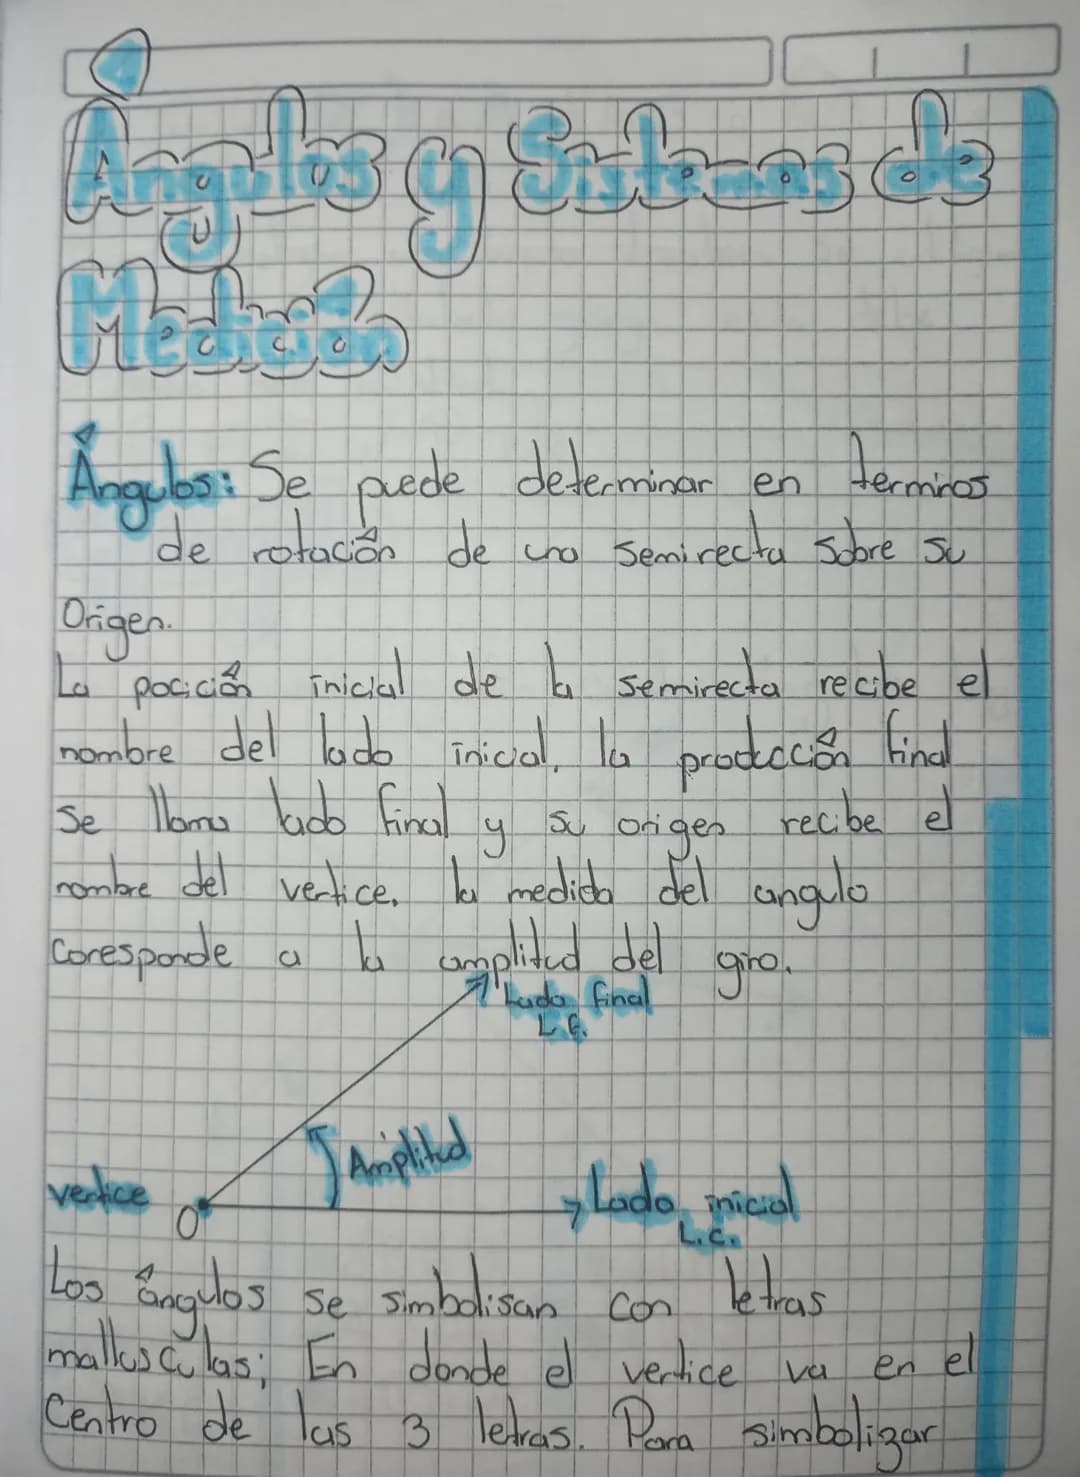 Ángulos y Sistemas de
Medición
Ángulos: Se puede determinar en terminos
de rotación de una semirecta sobre su
Origen.
La pocición inicial de la semirecta recibe el
nombre del lado inicial, la producción final
se llama lado final y su origen recibe el
nombre del vertice. la medida del angulo
Coresponde a la amplitud del giro.
Lado final
L.F.
Amplitud
vertice
O
Lado inicial
L.C.
Los ángulos se simbolisan con letras
mallusculas; En donde el vertice va en el
Centro de las 3 letras. Para simbolizar